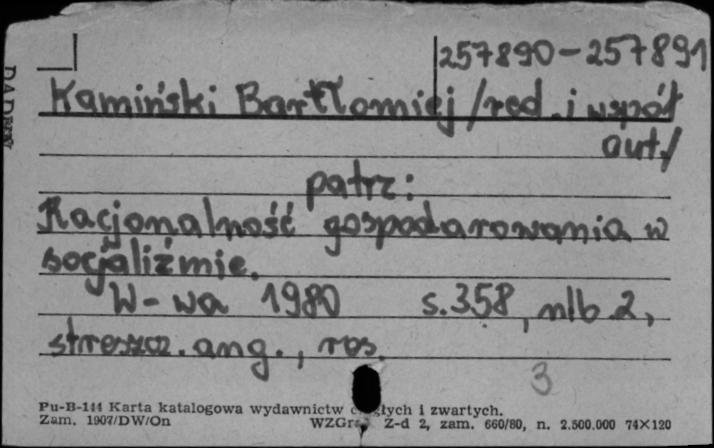 257890-257891
Kamiński Bartłomiej /red. i współ
aut./
patrz:
Racjonalność gospodarowania w
socjaliźmie.
W-wa 1980 s.358, nlb.2,
streszcz. ang., ros.
3
Pu-B-144 Karta katalogowa wydawnictw ciągłych i zwartych.
Zam. 1907/DW/On WZGraf. Z-d 2, zam. 660/80, n. 2.500.000 74×120